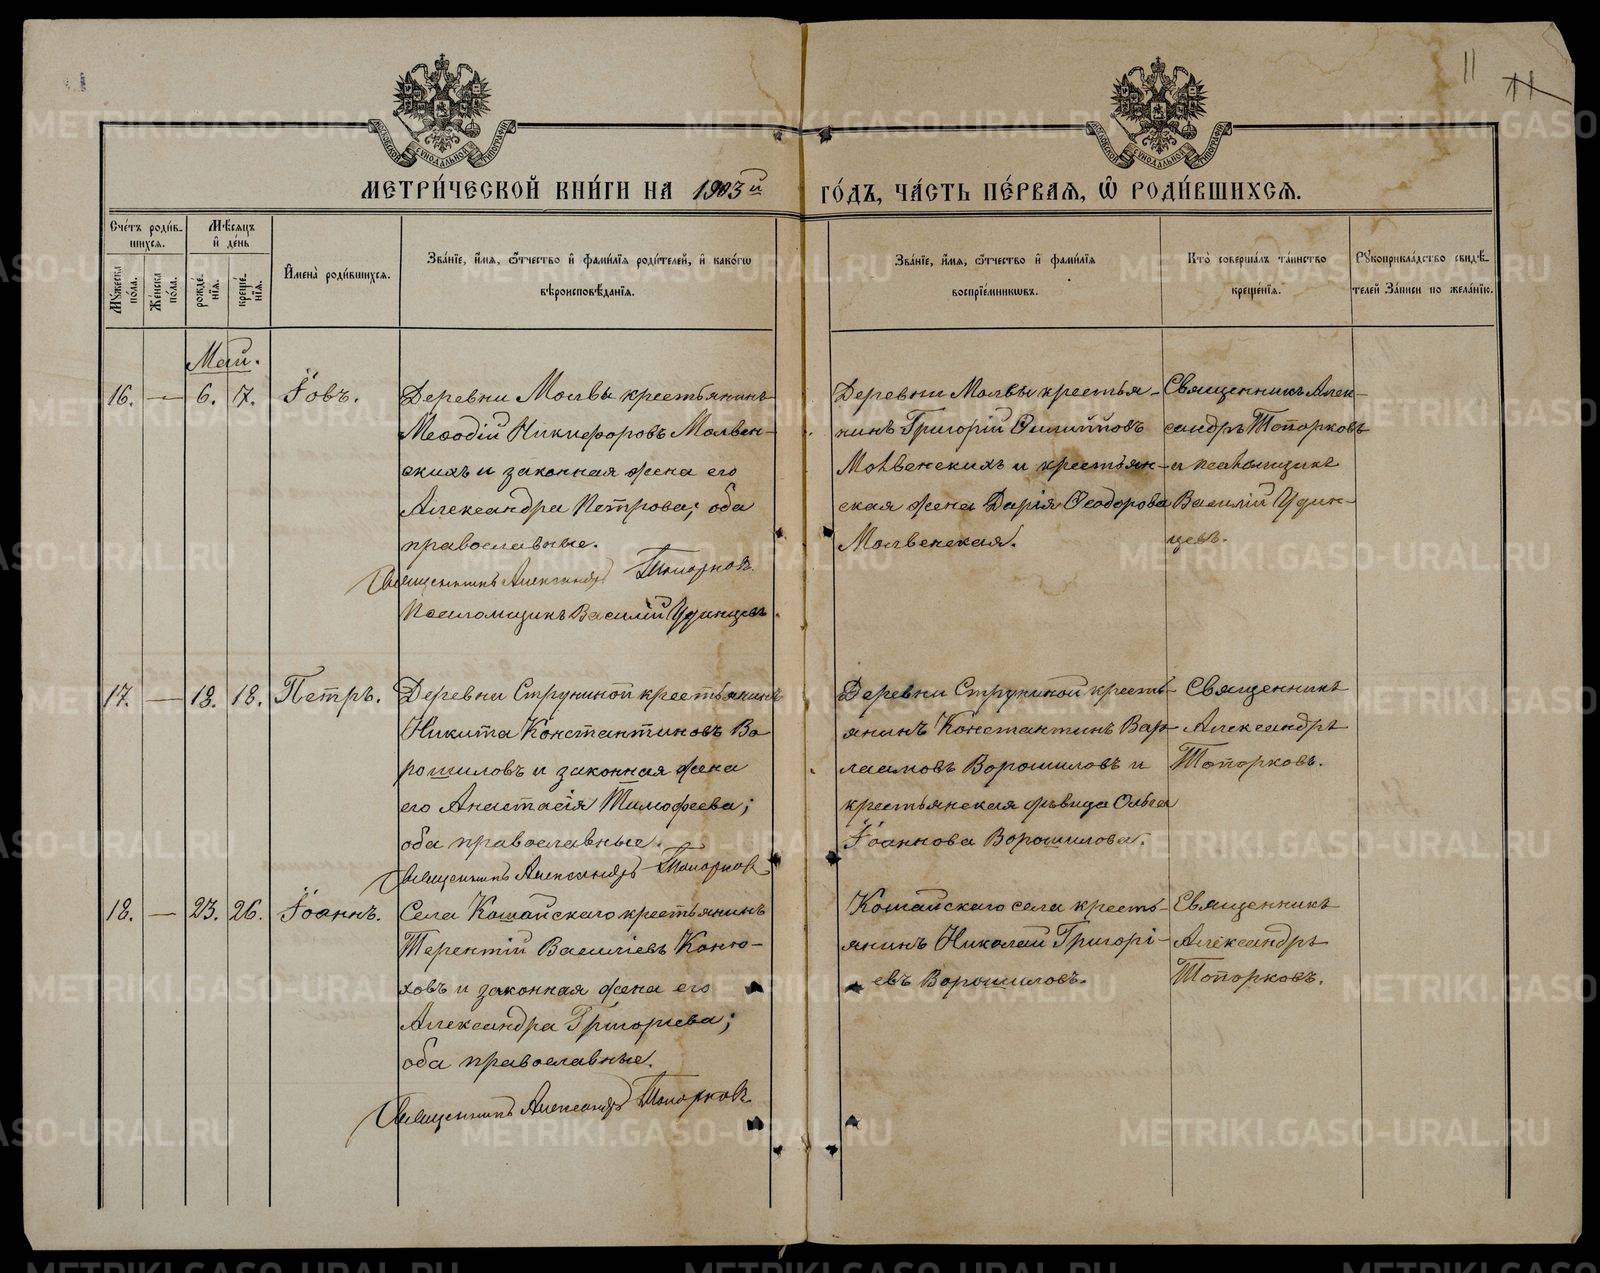 11
МОСКОВСКОЙ СѴНОДАЛЬНОЙ ТИПОГРАФІИ
МОСКОВСКОЙ СѴНОДАЛЬНОЙ ТИПОГРАФІИ
МЕТРИ́ЧЕСКОЙ КНИ́ГИ НА 1903й ГО́ДЪ, ЧА́СТЬ ПЕ́РВАЯ, Ѽ РОДИ́ВШИХСѦ.
Сче́тъ роди́в-
шихся.
Мꙋжеска по́ла.
Же́нска по́ла.
Мѣ́сяцъ
и҆ де́нь
рожде́-
нія.
креще́-
нія.
И҆мена̀ роди́вшихся.
Зва́нїе, и҆́мя, ѻ҆́тчество и҆ фами́лїя роди́телей, и҆ како́гѡ
вѣроисповѣ́данїя.
Зва́нїе, и҆́мя, ѻ҆́тчество и҆ фами́лїя
воспрїе́мникѡвъ.
Кто̀ соверша́лъ та́инство
креще́нїя.
Рꙋкоприкла́дство свидѣ́-
телей За́писи по жела́нїю.
Май.
16. — 6. 7. Іовъ.
Деревни Молвы крестьянинъ
Меѳодій Никифоровъ Молвен-
скихъ и законная жена его
Александра Петрова; оба
православные.
Священникъ Александръ Топорковъ
Псаломщикъ Василій Удинцевъ.
Деревни Молвы крестья-
нинъ Григорій Филипповъ
Молвенскихъ и крестьян-
ская жена Дарія Ѳеодорова
Молвенская.
Священникъ Алек-
сандръ Топорковъ
и псаломщикъ
Василій Удин-
цевъ.
17. — 18. 18. Петръ.
Деревни Струниной крестьянинъ
Никита Константиновъ Во
рошиловъ и законная жена
его Анастасія Тимофеева;
оба православные.
Священникъ Александръ Топорковъ
Деревни Струниной кресть-
янинъ Константинъ Вар-
лаамовъ Ворошиловъ и
крестьянская дѣвица Ольга
Іоаннова Ворошилова.
Священникъ
Александръ
Топорковъ.
18. — 23. 26. Іоаннъ.
Села Кошайскаго крестьянинъ
Терентій Василіевъ Коню-
ховъ и законная жена его
Александра Григоріева;
оба православные.
Священникъ Александръ Топорковъ
Кошайскаго села кресть-
янинъ Николай Григорі-
евъ Ворошиловъ.
Священникъ
Александръ
Топорковъ.
METRIKI.GASO-URAL.RU